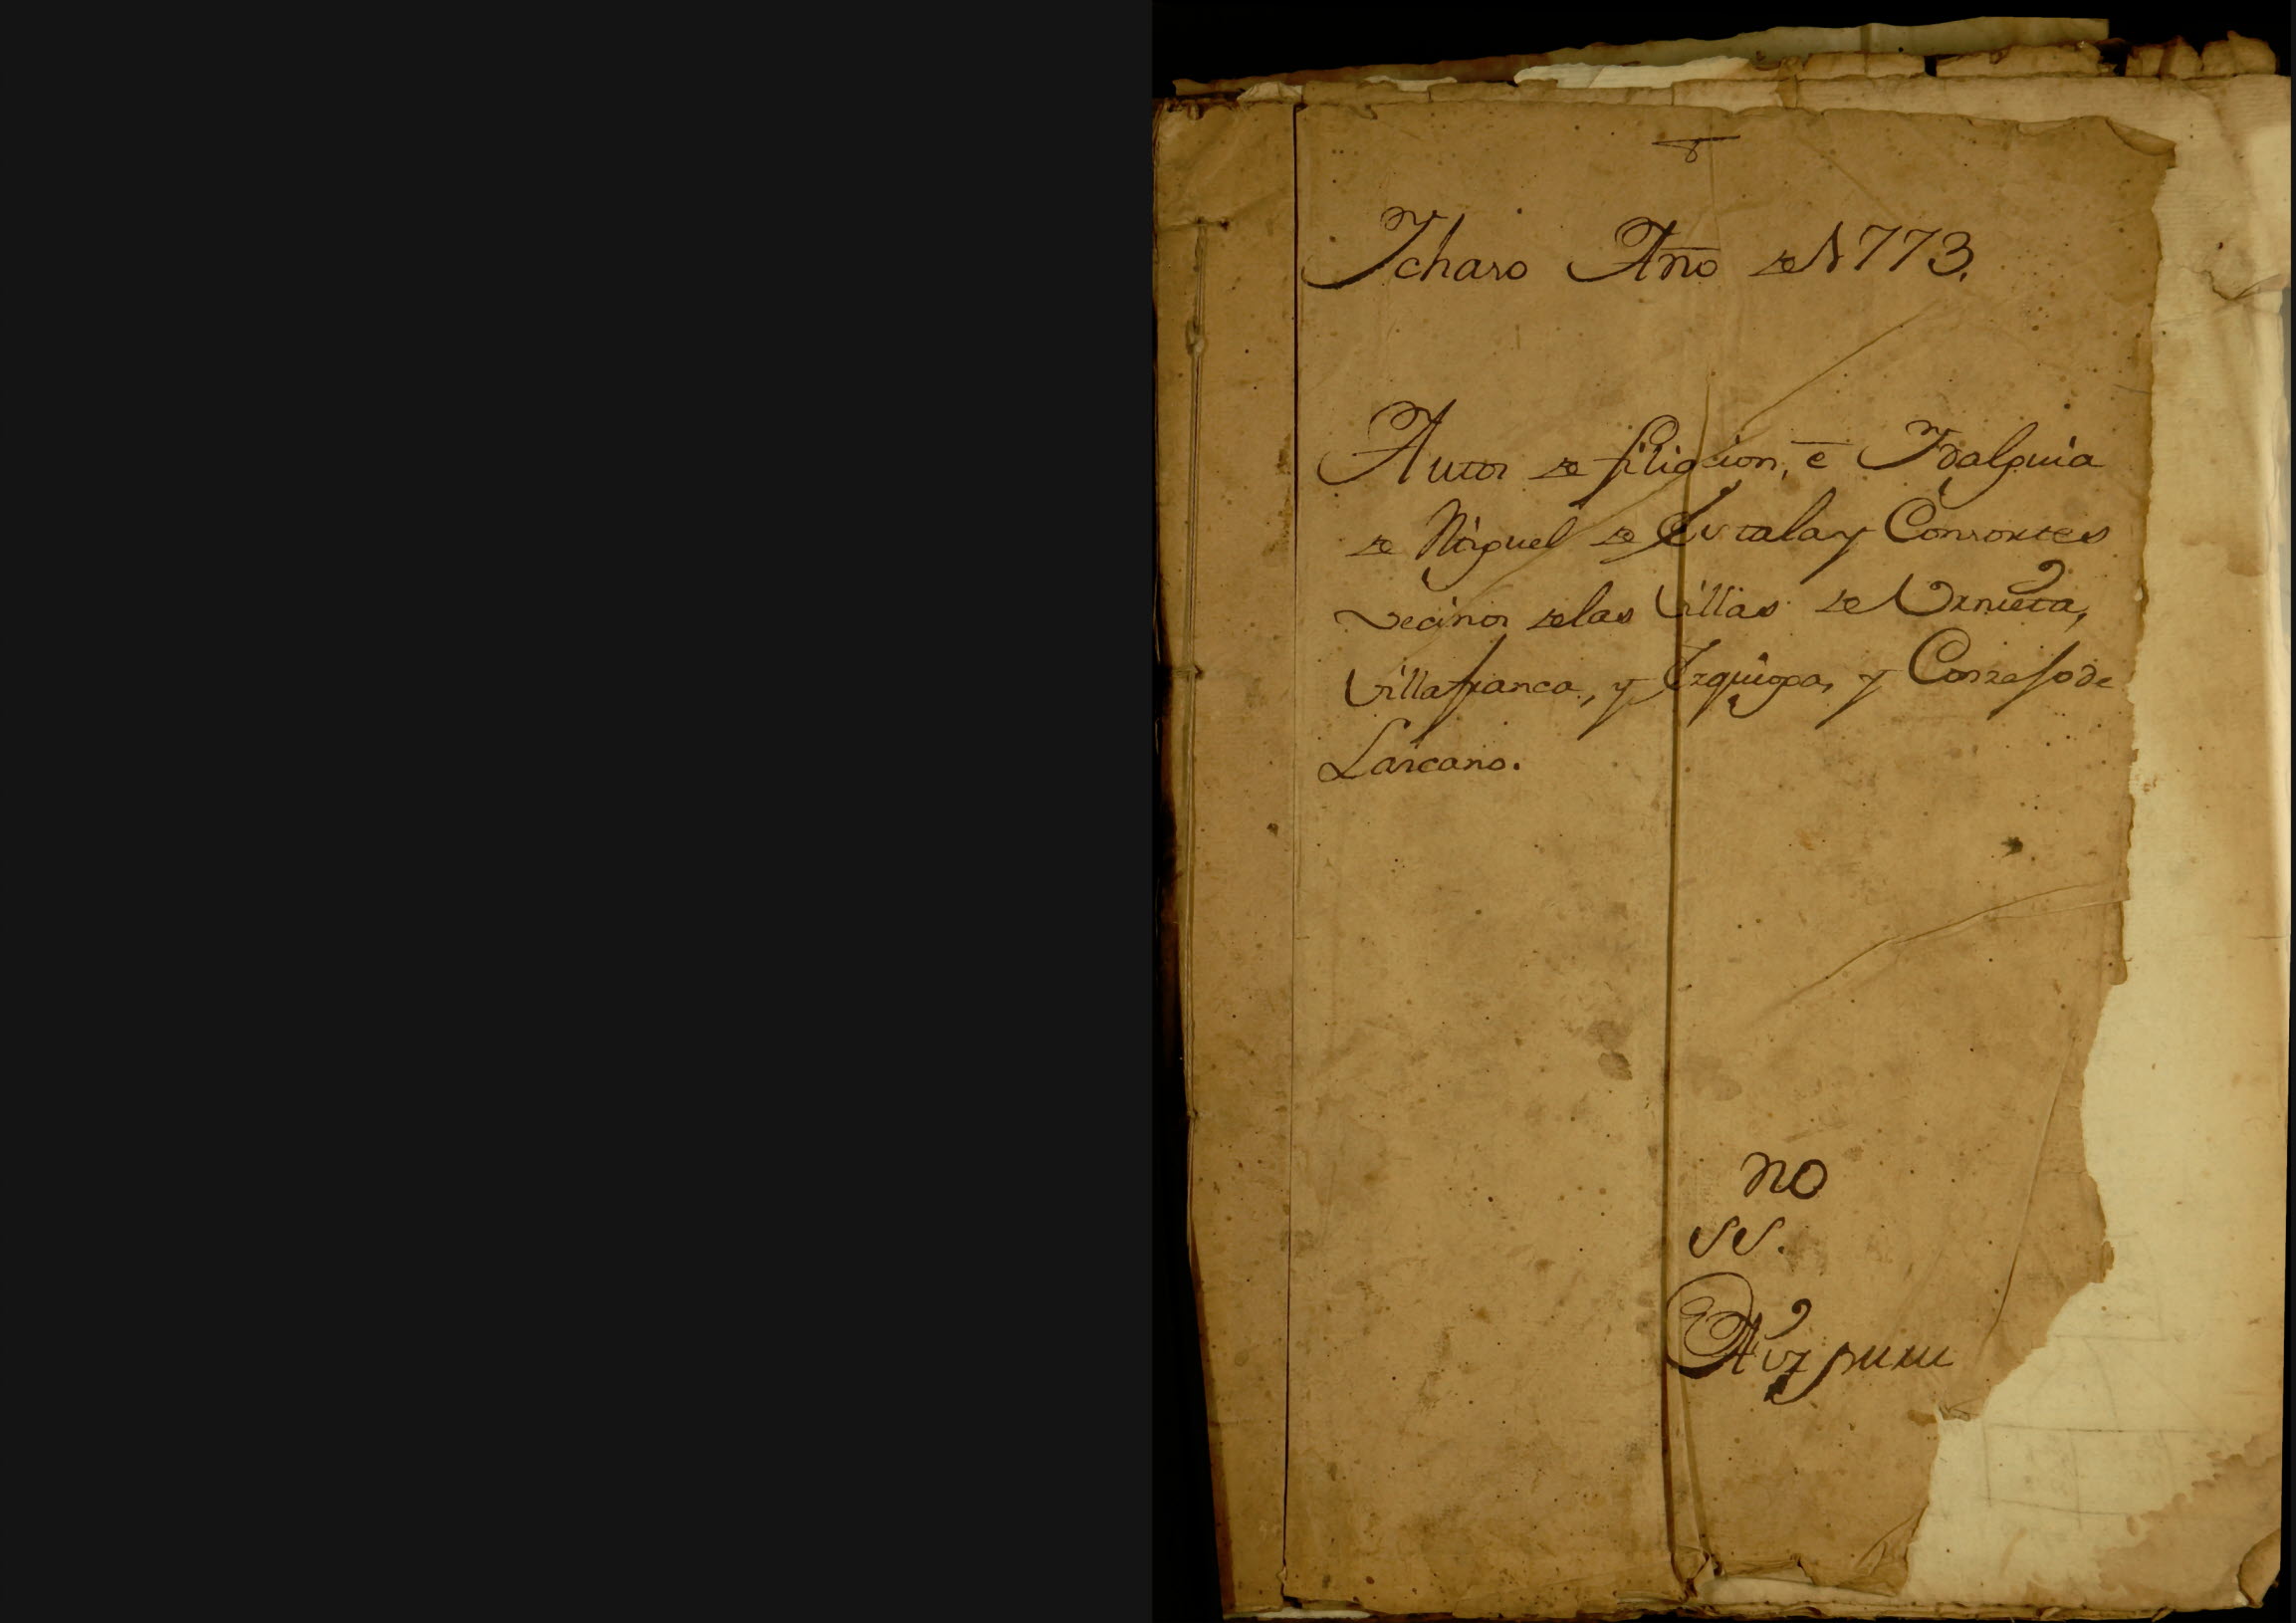 Ichaso Año de 1773.
Autos de filiacion, e Idalguia
de Miguel de Eustala y Consortes
vecinos de las Villas de Urnieta,
Villafranca, y Ezquioga, y Conzejo de
Lascano.
no
SS.
Aizpuru